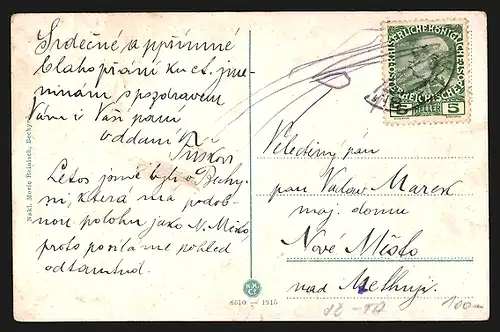 Srdečné a upřímné
blahopřání ku ct. jme-
ninám s pozdravem
Vám i Vaší paní
oddaní
Letos jsme byli v Bechy-
ni, která má podob-
nou polohu jako N. Město,
proto posíláme pohled
odtamtud.
Nakl. Moric Reinisch, Bechyně
KAISERLICHE KÖNIGLICHE
ÖSTERREICHISCHE
5 HELLER 5
Velectěný pán
pan Václav Marek
maj. domu
Nové Město
nad Methují.
K.K.
C?
8610 1915
100-